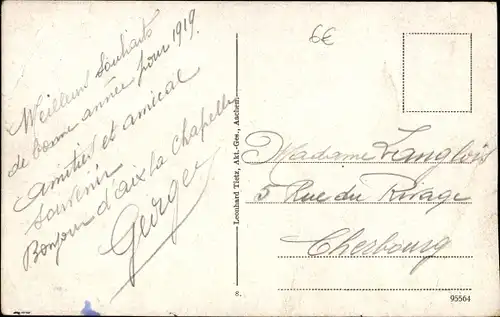 Meilleurs Souhaits
de bonne année pour 1919.
Amitiés et amical
Souvenir
Bonjour d'aix la Chapelle
Georges
Leonhard Tietz, Akt.-Ges., Aachen.
8.
6€
Madame Langlois
5 Rue du Rivage
Cherbourg
95564